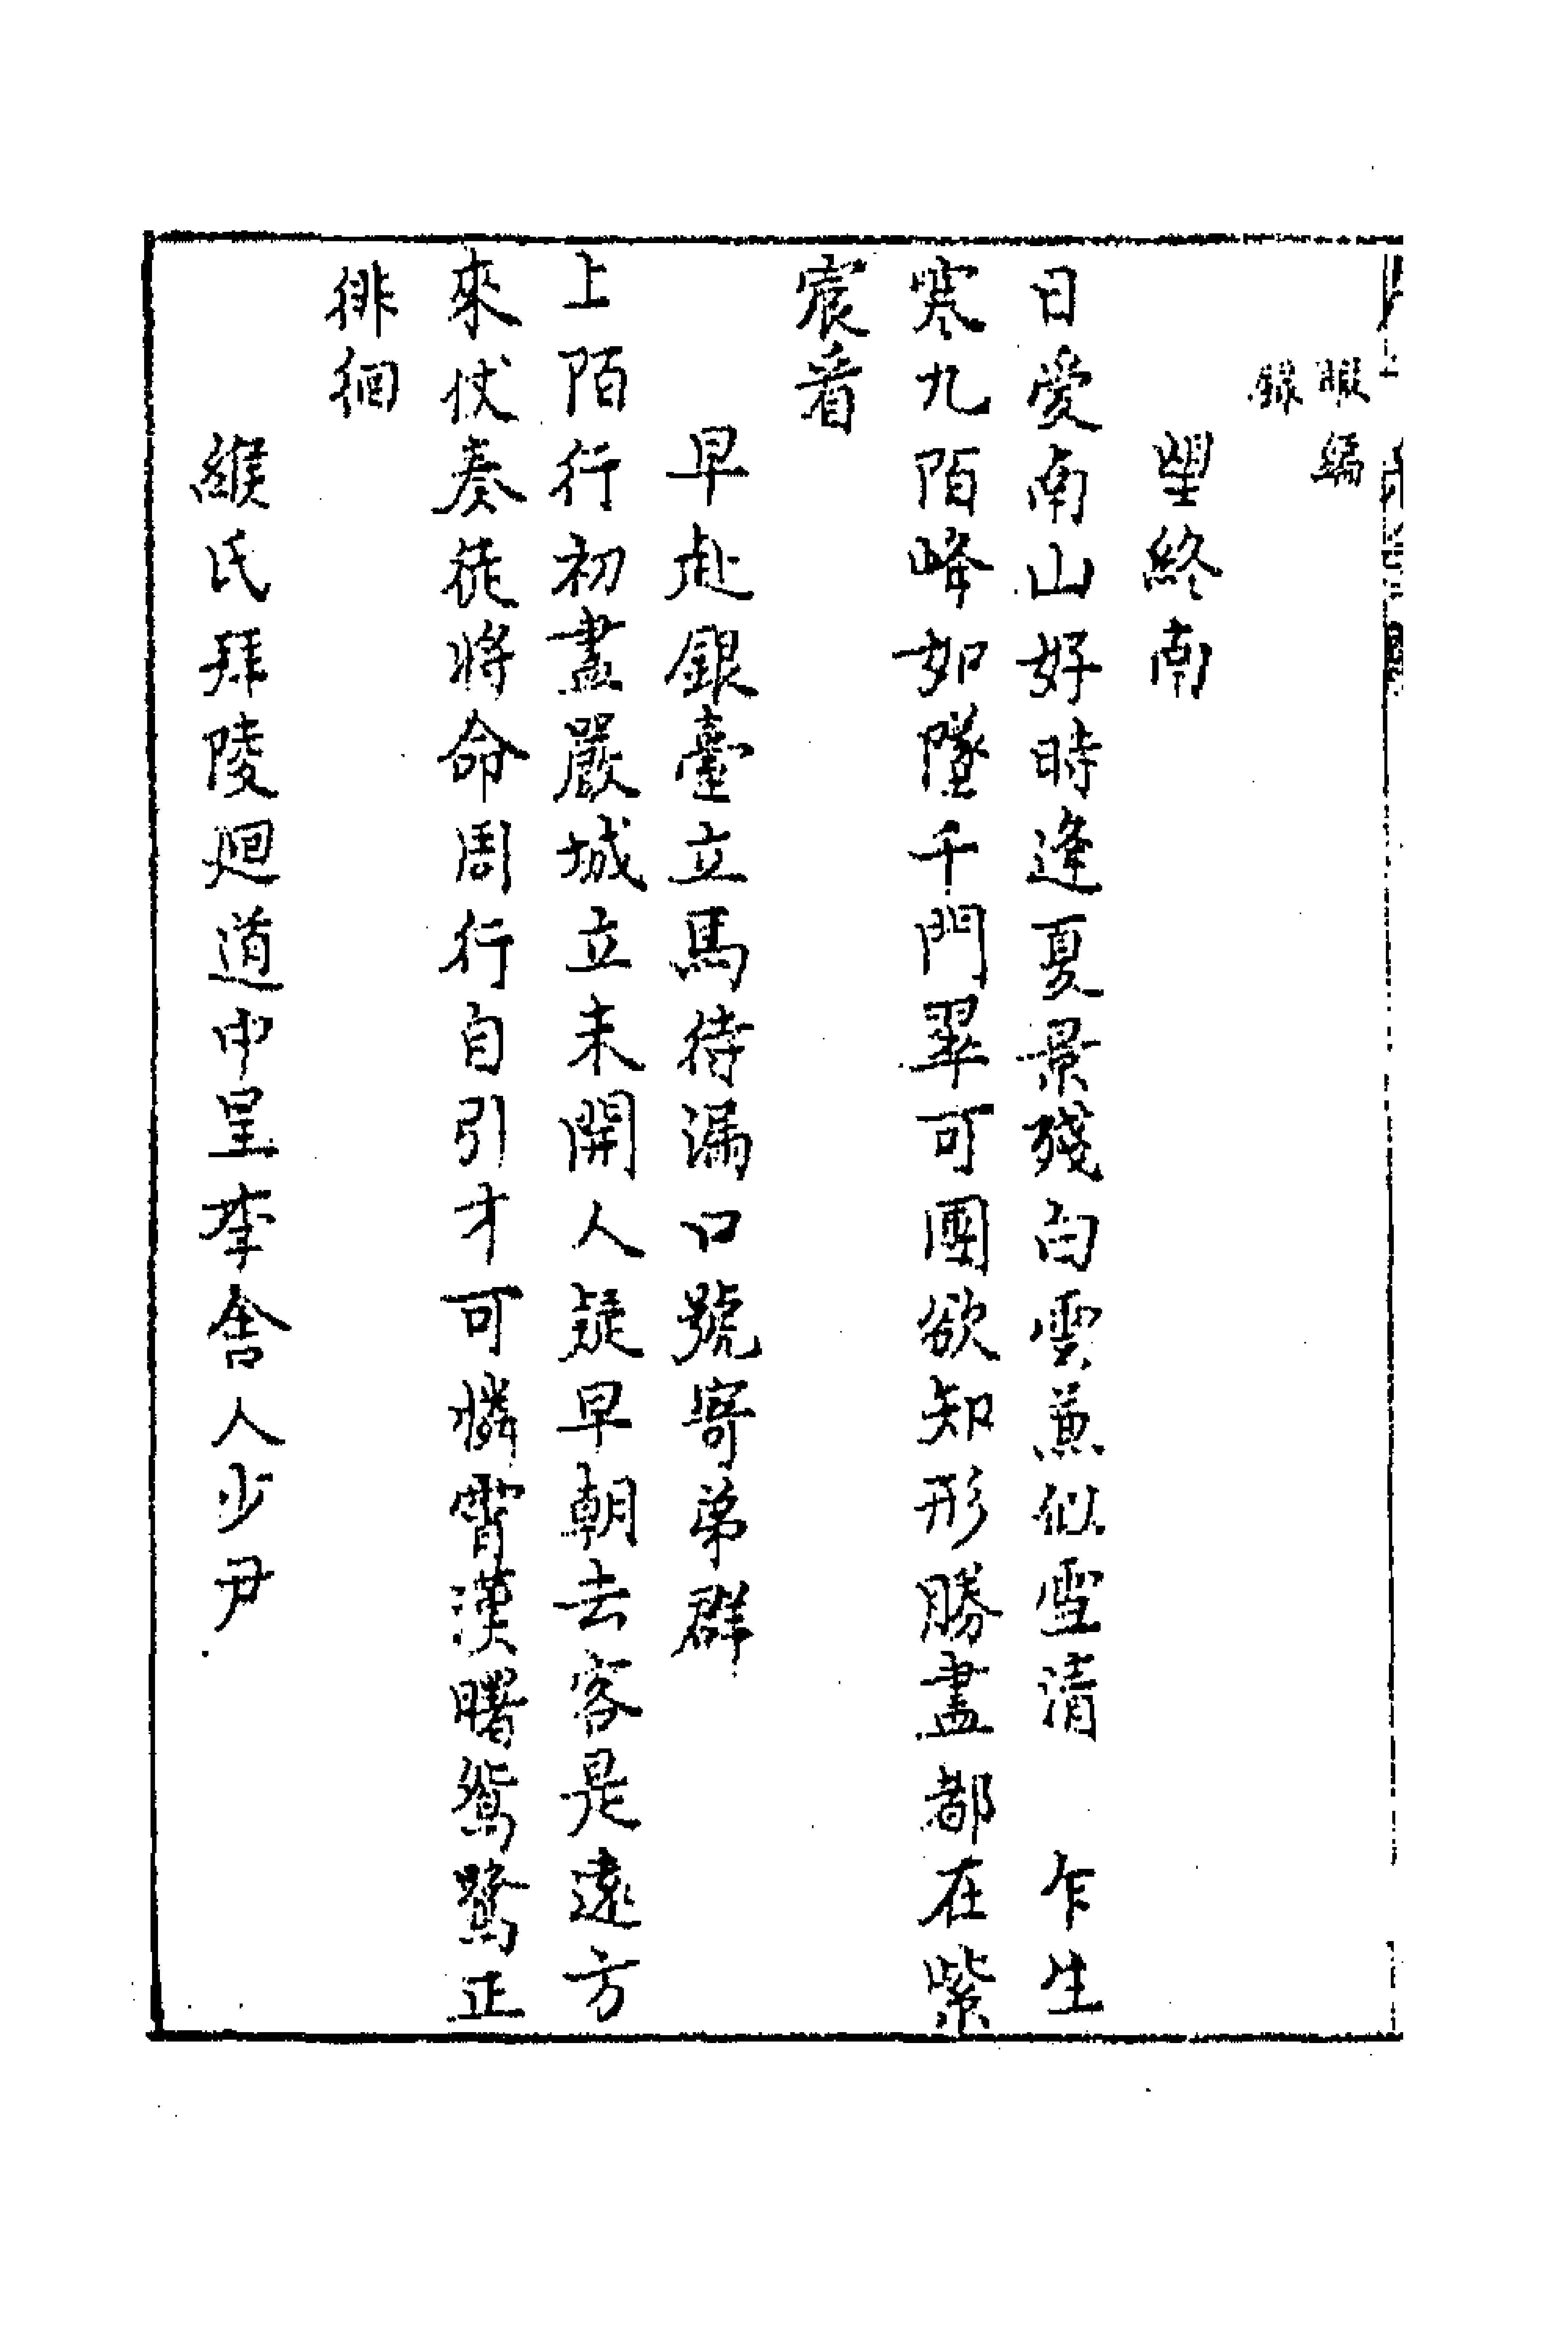 暇編
錄
望終南
日愛南山好時逢夏景殘白雲兼似雪清　乍生
寒九陌峰如墜千門翠可團欲知形勝盡都在紫
宸看
早赴銀臺立馬待漏口號寄弟群
上陌行初盡嚴城立未開人疑早朝去客是遠方
來伏奏徒將命周行自引才可憐霄漢曙鴛鷺正
徘徊
緱氏拜陵迴道中呈李舍人少尹